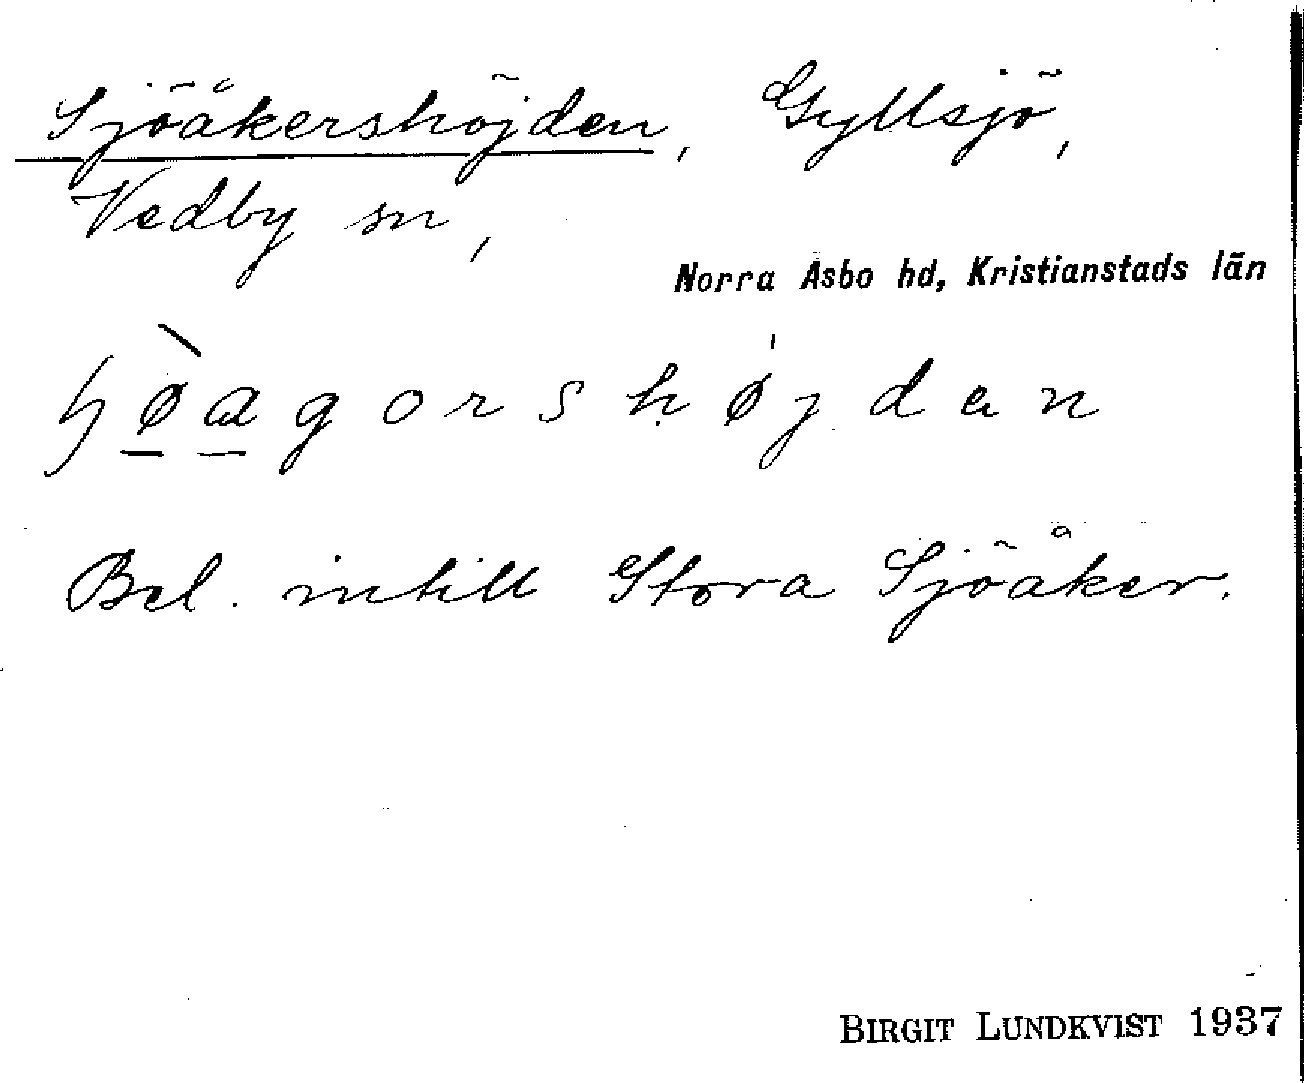 Sjöåkershöjden, Gyllsjö,
Vedby sn,
Norra Åsbo hd, Kristianstads län
ɧ ø̲̀ a̲ g o r s h ǿ j d a n
Bel. intill Stora Sjöåker.
BIRGIT LUNDKVIST 1937